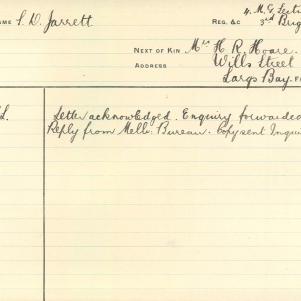 AME S. D. Jarrett
REG. &c
4. M. G. Secti
3rd Brig
NEXT OF KIN Mrs H. R. Hoare.
ADDRESS
Wills Street
Largs Bay.
Letter acknowledged. Enquiry forwarded
Reply from Melb: Bureau. Copy sent Inqui